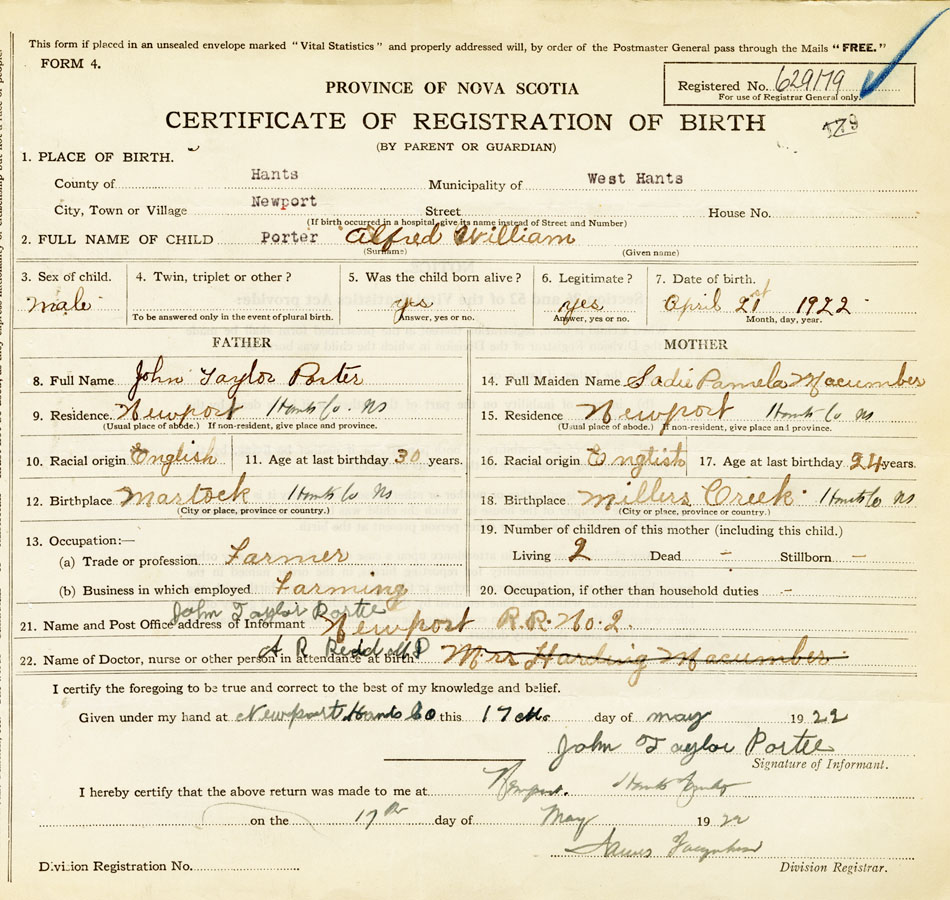 This form if placed in an unsealed envelope marked "Vital Statistics" and properly addressed will, by order of the Postmaster General pass through the Mails "FREE."
FORM 4.
Registered No. 629179
For use of Registrar General only.
PROVINCE OF NOVA SCOTIA
CERTIFICATE OF REGISTRATION OF BIRTH
(BY PARENT OR GUARDIAN)
1. PLACE OF BIRTH.
County of Hants Municipality of West Hants
City, Town or Village Newport Street House No.
(If birth occurred in a hospital, give its name instead of Street and Number)
2. FULL NAME OF CHILD Porter Alfred William
(Surname) (Given name)
3. Sex of child. 4. Twin, triplet or other? 5. Was the child born alive? 6. Legitimate? 7. Date of birth.
male yes yes April 21st 1922
To be answered only in the event of plural birth. Answer, yes or no. Answer, yes or no. Month, day, year.
FATHER MOTHER
8. Full Name John Taylor Porter 14. Full Maiden Name Sadie Pamela Macumber
9. Residence. Newport Hants Co. NS 15. Residence Newport Hants Co NS
(Usual place of abode.) If non-resident, give place and province. (Usual place of abode.) If non-resident, give place and province.
10. Racial origin English 11. Age at last birthday 30 years. 16. Racial origin English 17. Age at last birthday 24 years.
12. Birthplace Martock Hants Co NS 18. Birthplace Millers Creek Hants Co NS
(City or place, province or country.) (City or place, province or country.)
13. Occupation:— 19. Number of children of this mother (including this child.)
(a) Trade or profession Farmer Living 2 Dead - Stillborn -
(b) Business in which employed Farming 20. Occupation, if other than household duties -
John Taylor Porter
21. Name and Post Office address of Informant Newport R.R. No. 2.
22. Name of Doctor, nurse or other person in attendance at birth A. R. Reid MD Mrs Harding Macumber
I certify the foregoing to be true and correct to the best of my knowledge and belief.
Given under my hand at Newport Hants Co this 17th day of may 1922
John Taylor Porter
Signature of Informant.
I hereby certify that the above return was made to me at Newport. Hants
on the 17th day of May 1922
James
Division Registration No. Division Registrar.